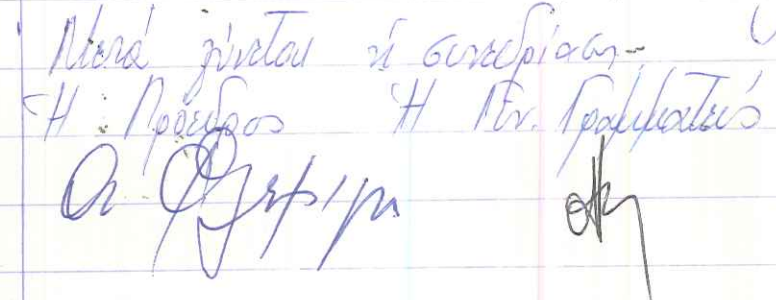 Μετά λύεται ἡ συνεδρίαση.
Ἡ Πρόεδρος Ἡ Γεν. Γραμματεύς